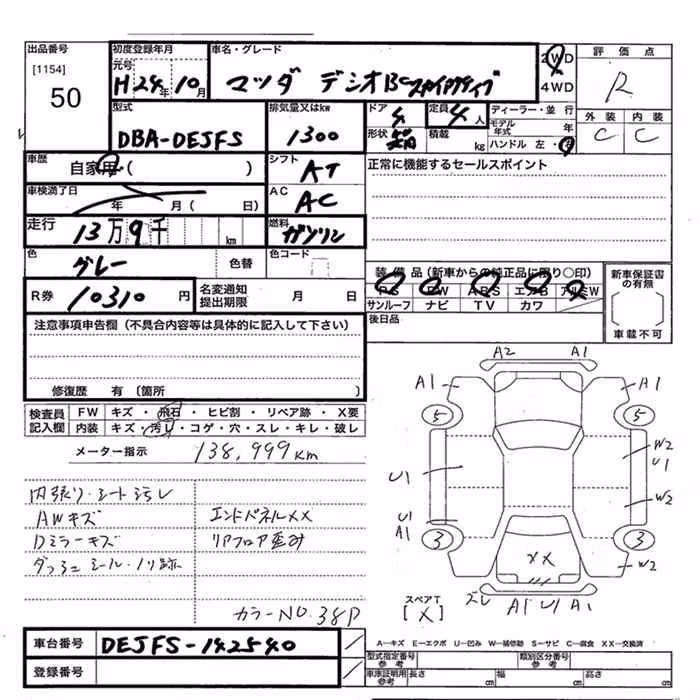 出品番号
[1154]
50
初度登録年月
元号
H 24年 10月
車名・グレード
マツダ デミオ13Cスカイアクティブ
2WD
4WD
評価点
R
外装 内装
C C
型式
DBA-DEJFS
排気量又はkw
1300
ドア
4
形状
定員
4人
積載 kg
ディーラー・並行
モデル年式 年
ハンドル 左・右
車歴
自家用 ( )
シフト
AT
正常に機能するセールスポイント
車検満了日
年 月( 日)
AC
AC
走行
13万9千 km
燃料
ガソリン
色
グレー
色替
色コード
R券
10310円
名変通知
提出期限
月 日
装備品(新車からの純正品に限り○印)
PS PW ABS エアB アルミW
サンルーフ ナビ TV カワ
新車保証書
の有無
車載不可
後日品
注意事項申告欄(不具合内容等は具体的に記入して下さい)
修復歴 有〔箇所 〕
検査員
記入欄
FW キズ・飛石・ヒビ割・リペア跡・X要
内装 キズ・汚レ・コゲ・穴・スレ・キレ・破レ
メーター指示 138,999km
内張り・シート汚レ
AWキズ
Dミラーキズ
ダッシュ シール・ノリ跡
エンドパネルXX
リアフロア歪み
カラーNO.38P
A2 A1
A1 A1
5 5
W2
U1
U1
W2
U1
A1
3 3
XX
W2
スペアT
[X]
ズレ
A1 U1 A1
車台番号 DEJFS-142540
登録番号
A…キズ E…エクボ U…凹み W…補修跡 S…サビ C…腐食 XX…交換済
型式指定番号
参考
類別区分番号
参考
車庫証明用
参考
長さ cm 幅 cm 高さ cm